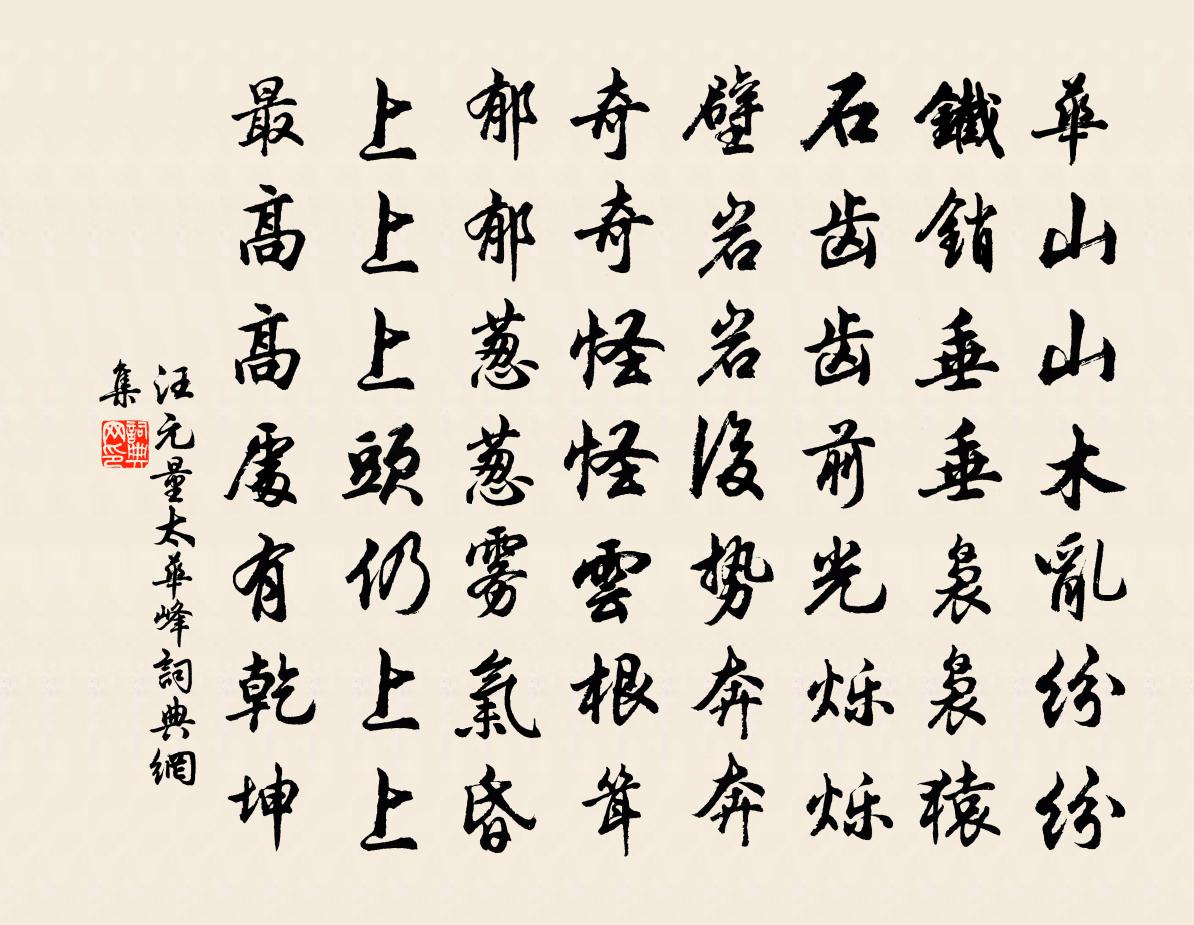 華山山木亂紛紛
鐵銷垂垂裊裊猿
石齿齿前光烁烁
壁岩岩後势奔奔
奇奇怪怪雲根耸
郁郁葱葱雾氣昏
上上上頭仍上上
最高高處有乾坤
汪元量太華峰詞典網
集
詞典
网印